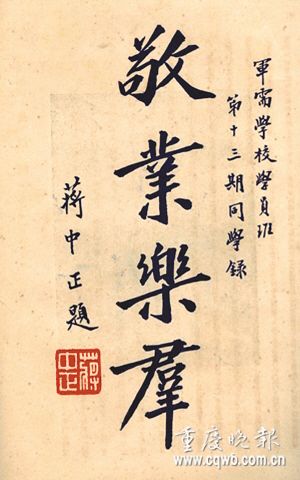 軍需學校學員班
第十三期同學錄
敬業樂羣
蔣中正題
蔣中正
重庆晚报
www.cqwb.com.cn